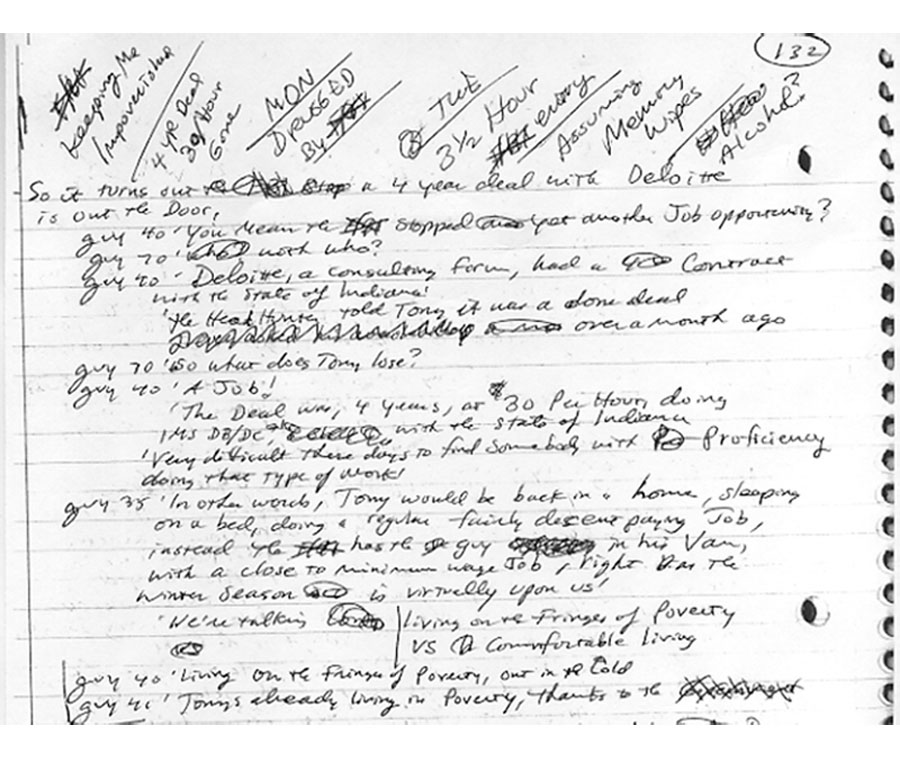 132
Keeping Me
Impoverished
4 yr Deal
30/Hour
Gone
MON
DRUGGED
By
TUE
3 1/2 Hour
Assuming
Memory
Wipes
Alcohol?
So it turns out a 4 year deal with Deloitte
is out the Door,
guy 40 'You mean the stopped yet another Job opportunity?
guy 70 ' with who?
guy 40 'Deloitte, a consulting form, had a Contract
with the State of Indiana!
'The Head Hunter told Tony it was a done deal
over a month ago
guy 70 'So what does Tony lose?
guy 40 'A Job!
'The Deal was, 4 years, at $30 Per Hour, doing
IMS DB/DC, with the State of Indiana
'Very difficult these days to find Somebody with Proficiency
doing that Type of work!
guy 35 'In other words, Tony would be back in a home, sleeping
on a bed, doing a regular fairly descent paying Job,
instead the has the guy in his Van,
with a close to minimum wage Job, right as the
Winter Season is virtually upon us'
'We're talking living on the Fringes of Poverty
vs Commfortable living
guy 40 'Living on the Fringes of Poverty, out in the Cold
guy 41 'Tonys already living in Poverty, thanks to the